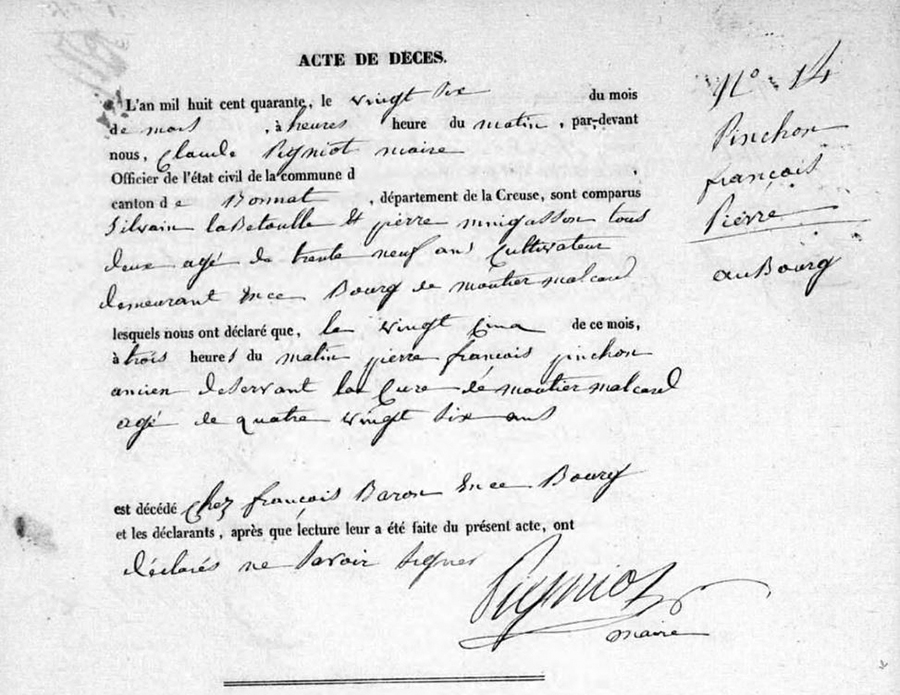 ACTE DE DECES.
L'an mil huit cent quarante, le vingt six du mois
de mars , à heures heure du matin, par-devant
nous, Claude Pigniot maire
Officier de l'état civil de la commune d
canton de Bonnat , département de la Creuse, sont comparus
Silvain laBetoulle et pierre tous
deux agé de trente neuf ans Cultivateur
demeurant Ence Bourg de moutier malcard
lesquels nous ont déclaré que, le vingt Cinq de ce mois,
à trois heures du matin pierre françois pinchon
ancien deservant la Cure de moutier malcard
agé de quatre vingt six ans
est décédé Chez françois Baron Ence Bourg
et les déclarants, après que lecture leur a été faite du présent acte, ont
déclarés ne Savoir Signer
Pigniot
maire
N° 14
Pinchon
françois
Pierre
au Bourg